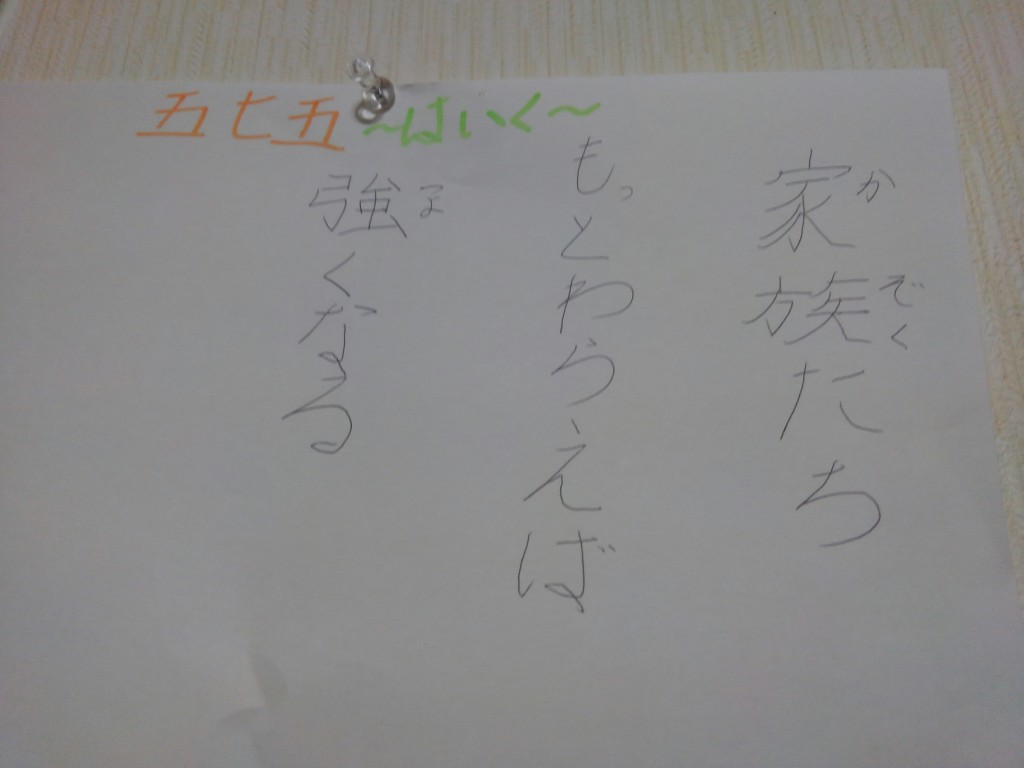 五七五～はいく～
家族たち
かでく
もっとわらえば
強くなる
つよ